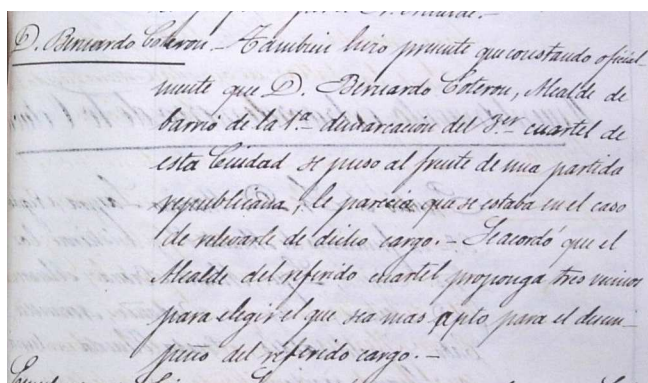 D. Bernardo Coteron - Tambien hizo presente que constando oficial-
mente que D. Bernardo Coteron, Alcalde de
barrio de la 1ª demarcacion del 3er cuartel de
esta Ciudad se puso al frente de una partida
republicana, le parecia que se estaba en el caso
de relevarle de dicho cargo. - Se acordó que el
Alcalde del referido cuartel proponga tres vecinos
para elegir el que sea mas apto para el desem-
peño del referido cargo. -